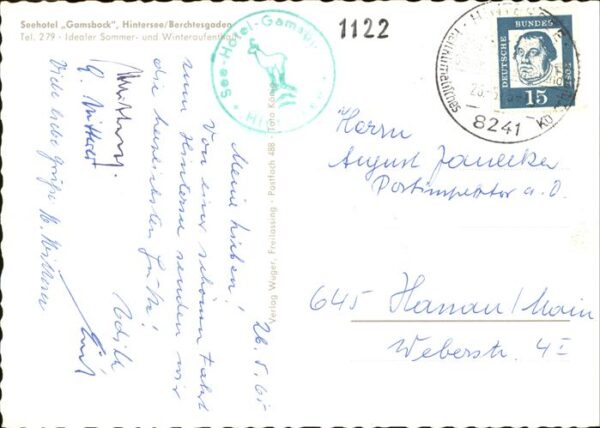 Seehotel „Gamsbock", Hintersee/Berchtesgaden
Tel. 279 · Idealer Sommer- und Winteraufenthalt
See-Hotel-Gamsbock
HINTERSEE
1122
HINTERSEE
8241
DEUTSCHE BUNDESPOST
15
26. 5. 65
Meine Lieben!
Von einer schönen Fahrt
zum Hintersee senden wir
die herzlichsten Grüße!
Edith
Viele liebe Grüße
Verlag Wagner, Freilassing · Postfach 488 · Foto König
Herrn
August Janecker
Postinspektor a. D.
645 Hanau/Main
Weberstr. 4 I